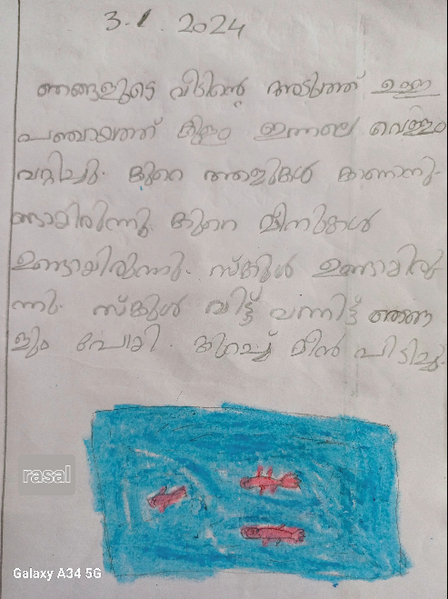 3.1.2024
ഞങ്ങളുടെ വീടിന്റെ അടുത്ത് ഉള്ള
പഞ്ചായത്ത് കുളം ഇന്നലെ വെള്ളം
വറ്റിച്ചു. കുറെ ആളുകൾ കാണാനു-
ണ്ടായിരുന്നു. കുറെ മീനുകൾ
ഉണ്ടായിരുന്നു. സ്കൂൾ ഉണ്ടായിരു
ന്നു. സ്കൂൾ വിട്ട് വന്നിട്ട് ഞങ്ങ
ളും പോയി. കുറച്ച് മീൻ പിടിച്ചു.
rasal
Galaxy A34 5G